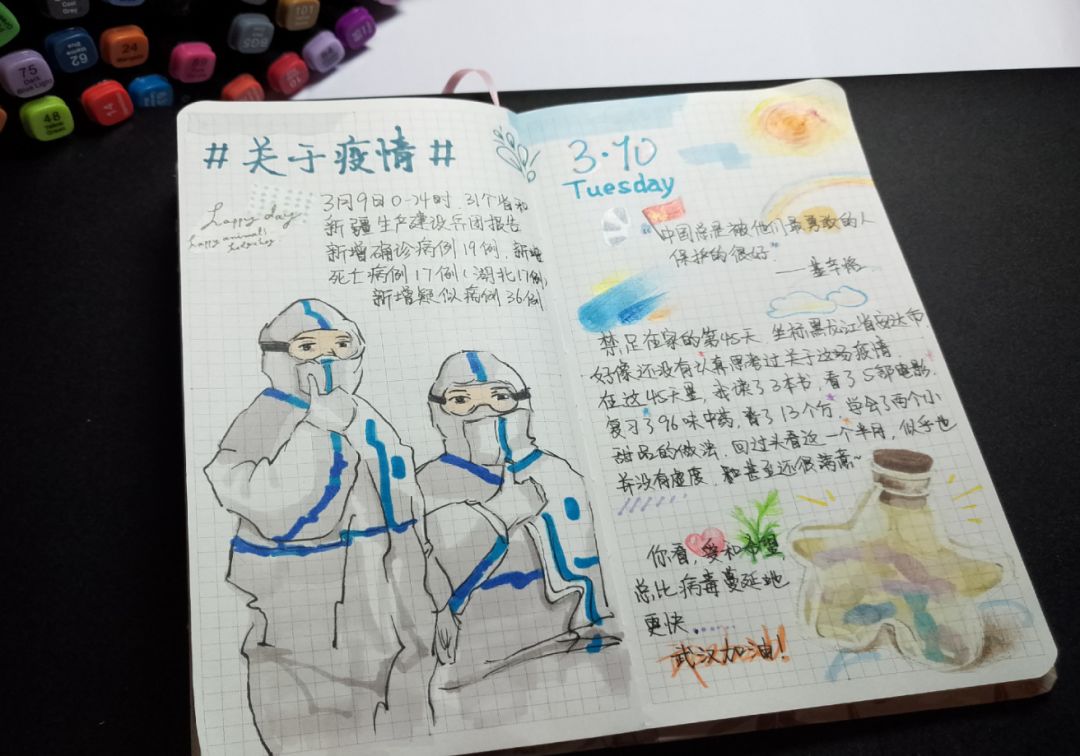 #关于疫情#
happy day.
happy animals
hedgehog
3月9日0-24时,31个省和
新疆生产建设兵团报告
新增确诊病例19例,新增
死亡病例17例(湖北17例)
新增疑似病例36例
3·10
Tuesday
"中国总是被他们最勇敢的人
保护的很好"
——基辛格
禁足在家的第45天,坐标黑龙江省安达市.
好像还没有认真思考过关于这场疫情,
在这45天里,我读了3本书,看了5部电影,
复习了96味中药,背了13个方,学会了两个小
甜品的做法,回过头看这一个半月,似乎也
并没有虚度,甚至还很满意~
你看,爱和希望
总比病毒蔓延地
更快......
武汉加油!
75
Dark
Blue Light
62
24
48
Yellow
Green
14
BG5
101
Cool
Grey